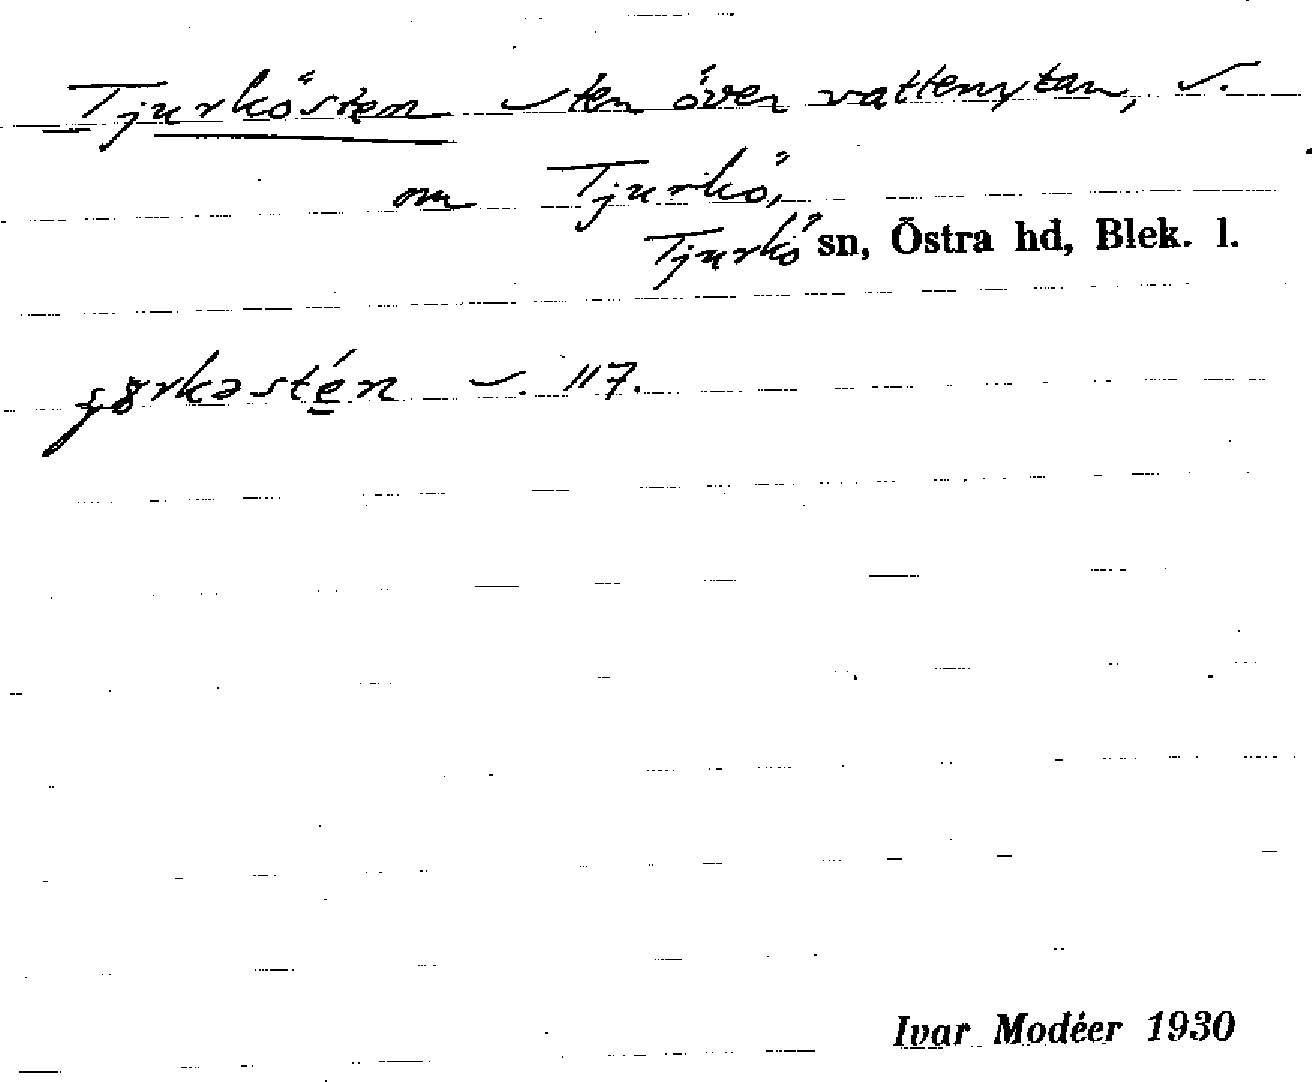 Tjurkösten sten över vattenytan, s.
om Tjurkö,
Tjurkö sn, Östra hd, Blek. l.
s. 117.
Ivar Modéer 1930